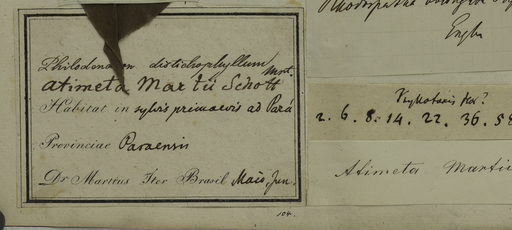 Philodendron distichophyllum Mrt.
Atimeta Martii Schott
Habitat in sylvis primaevis ad Pará
Provinciae Paraensis
Dr Martius Iter Brasil Maio, Jun.
104.
Engler
2. 6. 8. 14. 22. 36. 58
Atimeta Martii